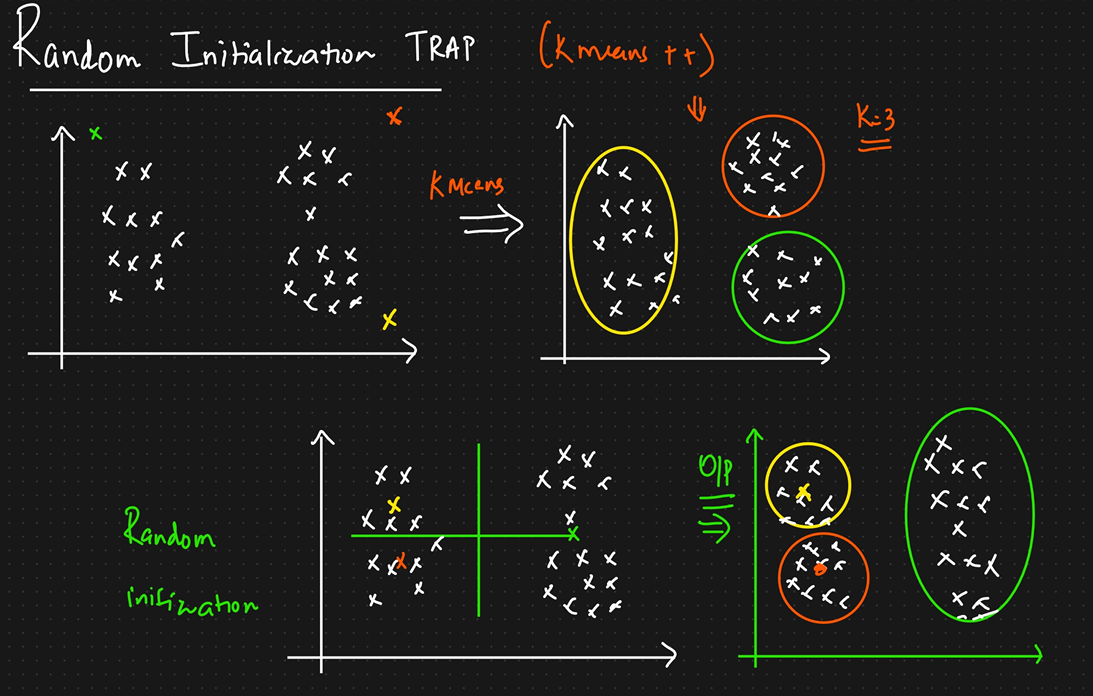 Random Initialization TRAP (Kmeans ++)
K=3
K Means
O/P
Random
initization